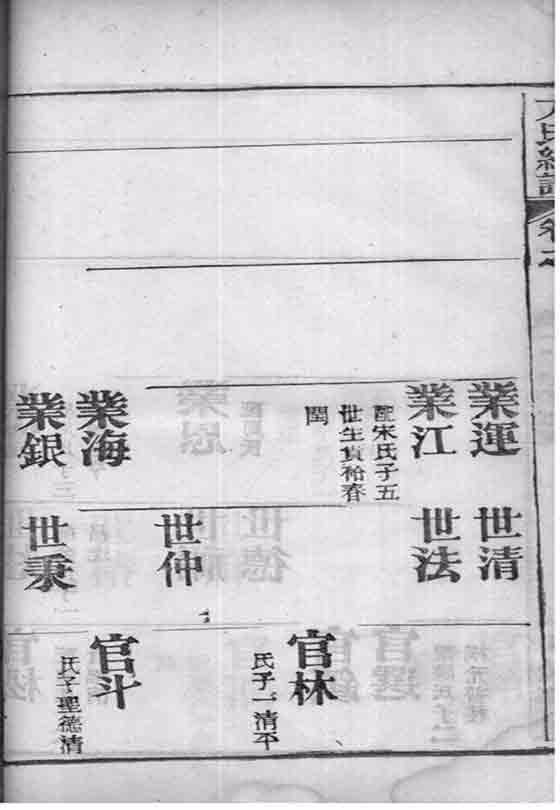 業運
業江
配宋氏子五
世生貞裕春
閏
業海
業銀
世清
世法
世仲
世秉
官林
氏子一清平
官斗
氏子聖德清